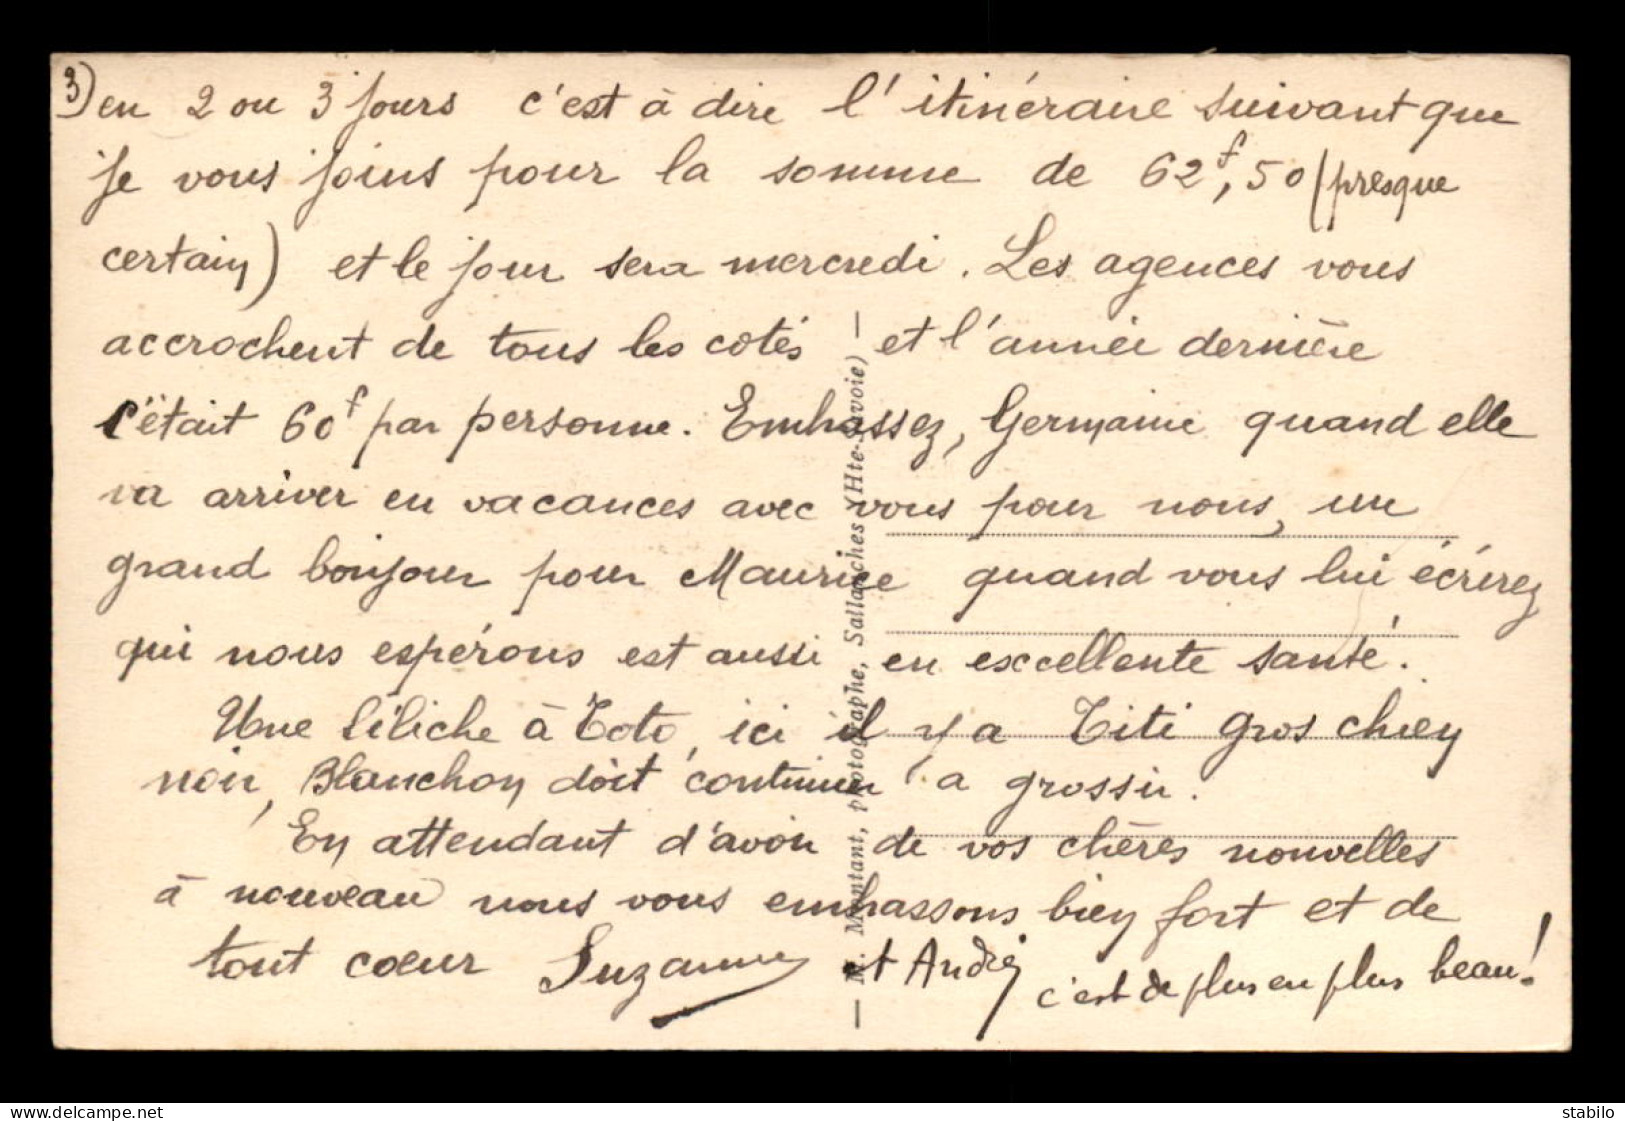 3) en 2 ou 3 jours c'est à dire l'itinéraire suivant que
je vous joins pour la somme de 62f,50 (presque
certain) et le jour sera mercredi. Les agences vous
accrochent de tous les cotés et l'année dernière
c'était 60f par personne. Embrassez, Germaine quand elle
va arriver en vacances avec vous pour nous, un
grand bonjour pour Maurice quand vous lui écrirez
qui nous espérons est aussi en excellente santé.
Une liliche à Toto, ici il y a Titi gros chien
noir, Blanchon doit continuer a grossir.
En attendant d'avoir de vos chères nouvelles
à nouveau nous vous embrassons bien fort et de
tout coeur Suzanne et André
c'est de plus en plus beau!
— M. Montant, photographe, Sallanches (Hte-Savoie) —
www.delcampe.net
stabilo